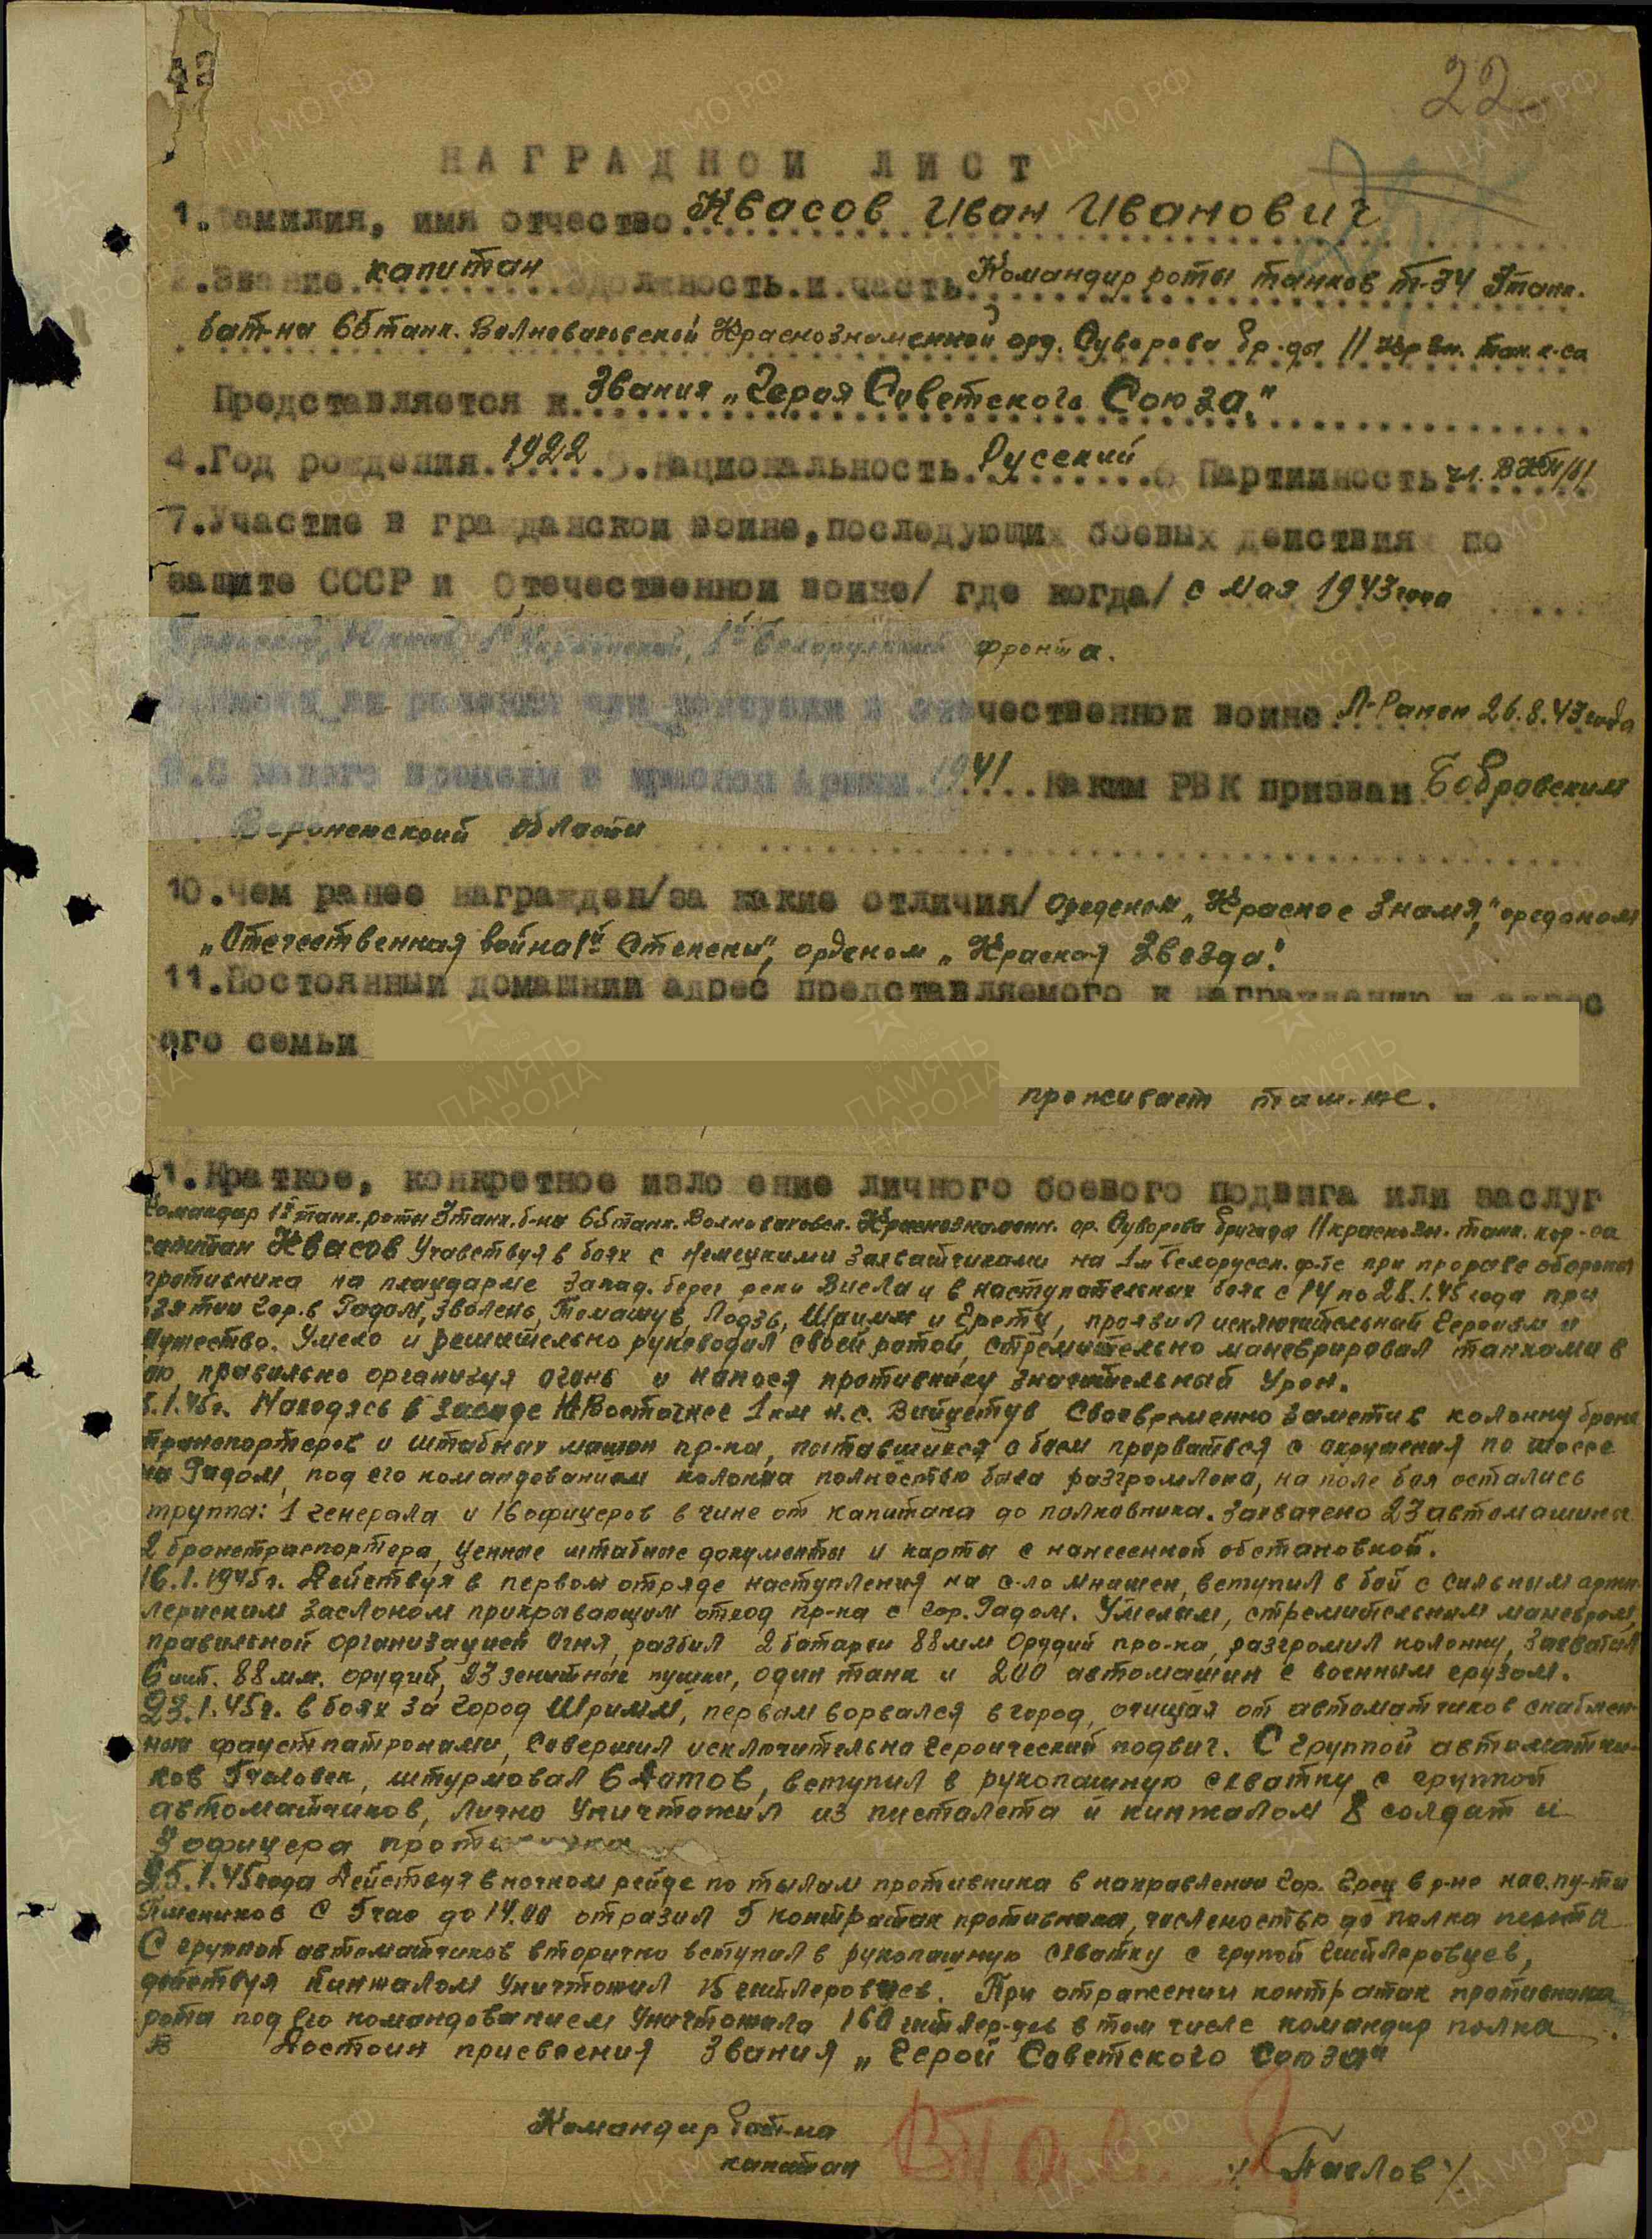 42
22
НАГРАДНОЙ ЛИСТ
1. Фамилия, имя отчество Квасов Иван Иванович
2. Звание капитан 3 должность и часть Командир роты танков Т-34 3 танк.
бат-на 65 танк. Волновахской Краснознаменной орд. Суворова бр-ды 11 Кр Зн. тан. к-са
Представляется к Звания „Героя Советского Союза."
4. Год рождения 1922 5. Национальность Русский 6 Партийность чл. ВКП/б/
7. Участие в гражданской войне, последующих боевых действиях по
защите СССР и Отечественной войне/ где когда/ с мая 1943 года
Юж 1й Украинский, 1й Белорусский фронта.
ли ранения или контузии в отечественной войне Л-Ранен 26.8.43 года
9. С какого времени в красной Армии 1941 Каким РВК призван Бобровским
Воронежской области
10. чем ранее награжден/за какие отличия/ Орденом „Красное Знамя," орденом
„Отечественная война 1й Степени", орденом „Красная Звезда".
11. Постоянный домашний адрес представляемого к награждению и адрес
его семьи
проживает там-же.
1. Краткое, конкретное изло ение личного боевого подвига или заслуг
Командир 1й танк. роты 3 танк. б-на 65 танк. Волновахск. Краснознаменн. ор. Суворова бригады 11 краснозн. танк. кор-са
капитан Квасов Участвуя в боях с немецкими захватчиками на 1м Белорусск. ф-те при прорыве обороны
противника на плацдарме запад. берег реки Висла и в наступательных боях с 14 по 28.1.45 года при
взятии гор.в Радом, Зволень, Томашув, Лодзь, Шримм и Гретц, проявил исключительный героизм и
мужество. Умело и решительно руководил своей ротой, стремительно маневрировал танками в
бою правильно организуя огонь и нанося противнику значительный урон.
.1.45г. Находясь в засаде Восточнее 1 км н.с. Вийцетув Своевременно заметив колонну броне
транспортеров и штабных машин пр-ка, пытавшихся с боем прорваться с окружения по шоссе
на Радом, под его командованием колонна полностью была разгромлена, на поле боя остались
труппа: 1 генерала и 16 офицеров в чине от капитана до полковника. Захвачено 23 автомашины
2 бронетраспортера, ценные штабные документы и карты с нанесенной обстановкой.
16.1.1945г. Действуя в первом отряде наступления на с-ло Мнишек, вступил в бой с сильным арти-
лериским заслоном прикрывающим отход пр-ка с гор. Радом. Умелым, стремительным маневром,
правильной организацией огня, разбил 2 батареи 88 мм орудий про-ка, разгромил колонну, захватил
6 шт. 88 мм. орудий, 23 зенитные пушки, один танк и 200 автомашин с военным грузом.
23.1.45г. в боях за город Шримм, первым ворвался в город, очищая от автоматчиков снаблен-
ных фаустпатронами, Совершил исключительно героический подвиг. С группой автоматчи-
ков 5 человек, штурмовал 6 Дотов, вступил в рукопашную схватку с группой
автоматчиков, лично Уничтожил из писталета и кинжалом 8 солдат и
3 офицера противника
25.1.45 года Действуя в ночном рейде по тылам противника в направлении гор. Грец в р-не нас.пу-та
С 5 час до 14.00 отразил 5 контратак противника, численостью до полка пехоты
С групной автоматчиков вторично вступил в рукопашную схватку с групой гитлеровцев,
действуя Кинжалом Уничтожил 15 гитлеровцев. При отражении контратак противника
рота под его командованием Уничтожила 160 гитлер-цев в том числе командир полка.
Достоин присвоения Звания „Герой Советского Союза"
Командир бат-на
капитан
/Павлов/